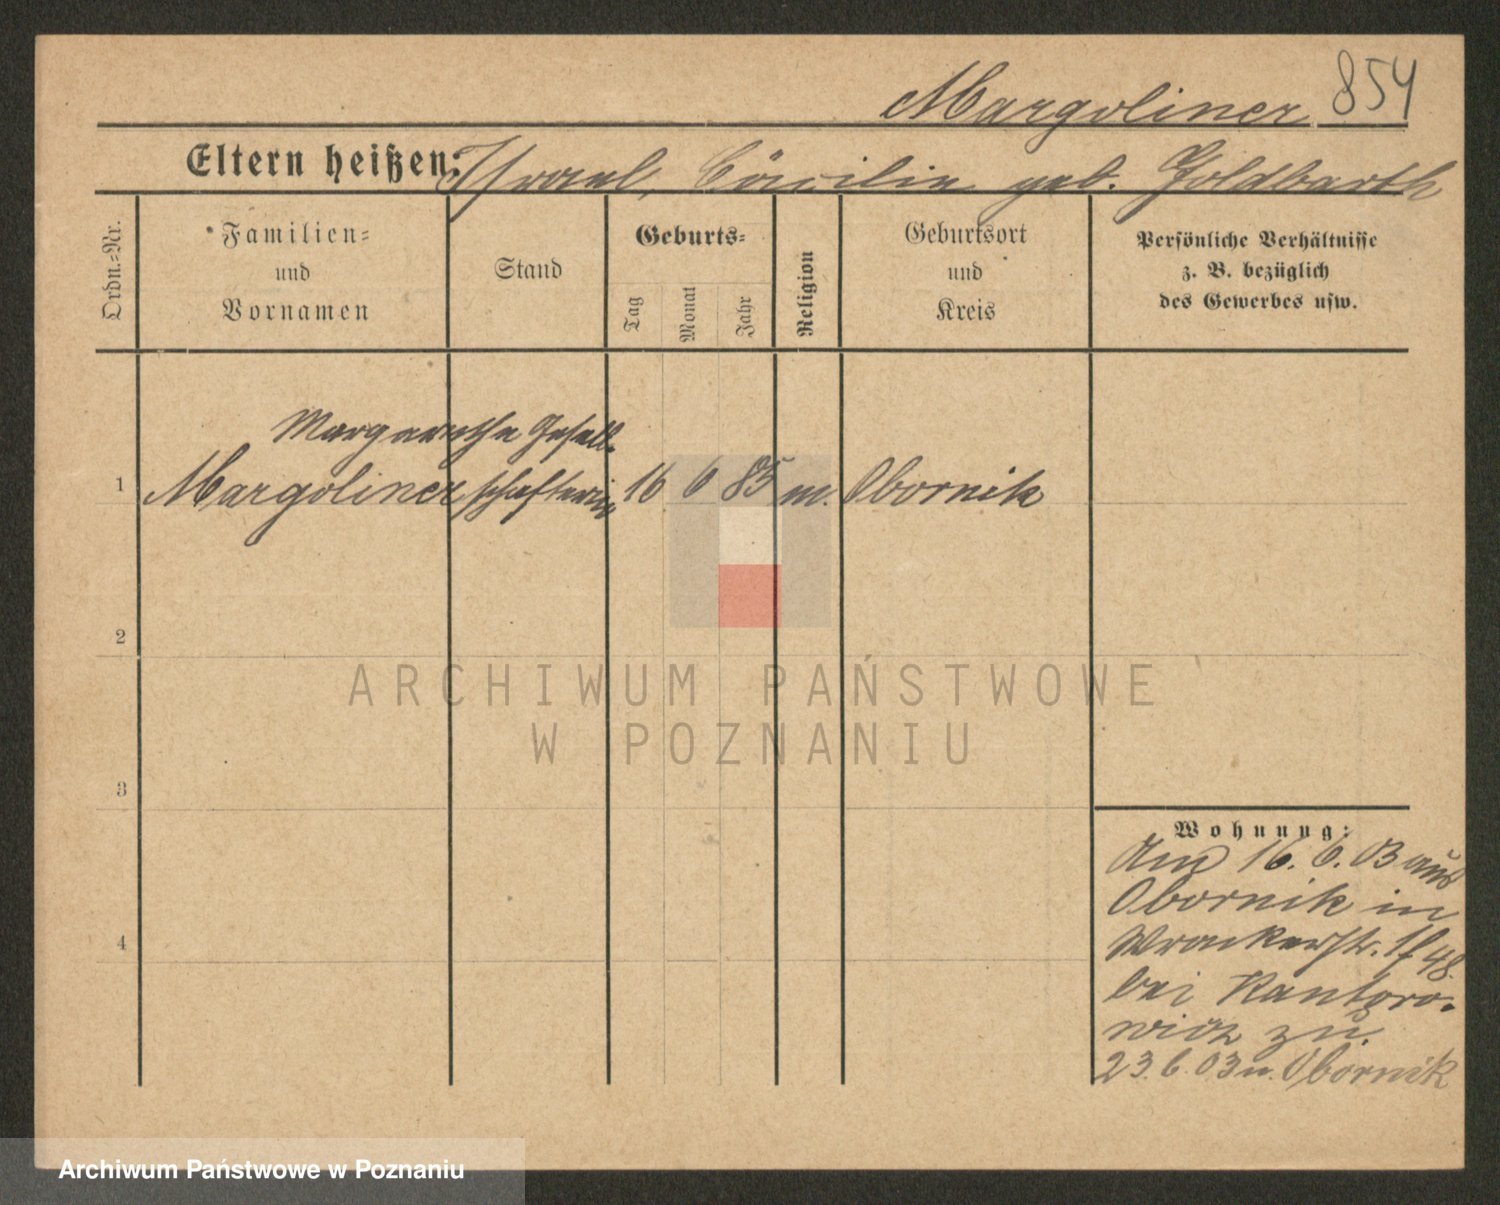 Margoliner 854
Eltern heißen: Israel, Cäcilie geb. Goldbarth
Ordn.-Nr.
Familien-
und
Vornamen
Stand
Geburts-
Tag
Monat
Jahr
Religion
Geburtsort
und
Kreis
Persönliche Verhältnisse
z. B. bezüglich
des Gewerbes usw.
Margarethe Gesell-
1 Margoliner schafterin 16 6 85 m. Obornik
2
3
4
Wohnung:
Am 16. 6. 03 aus
Obornik in
Wronkerstr. 48.
bei Kantoro-
wicz zu.
23. 6. 03 n. Obornik
ARCHIWUM PAŃSTWOWE
W POZNANIU
Archiwum Państwowe w Poznaniu